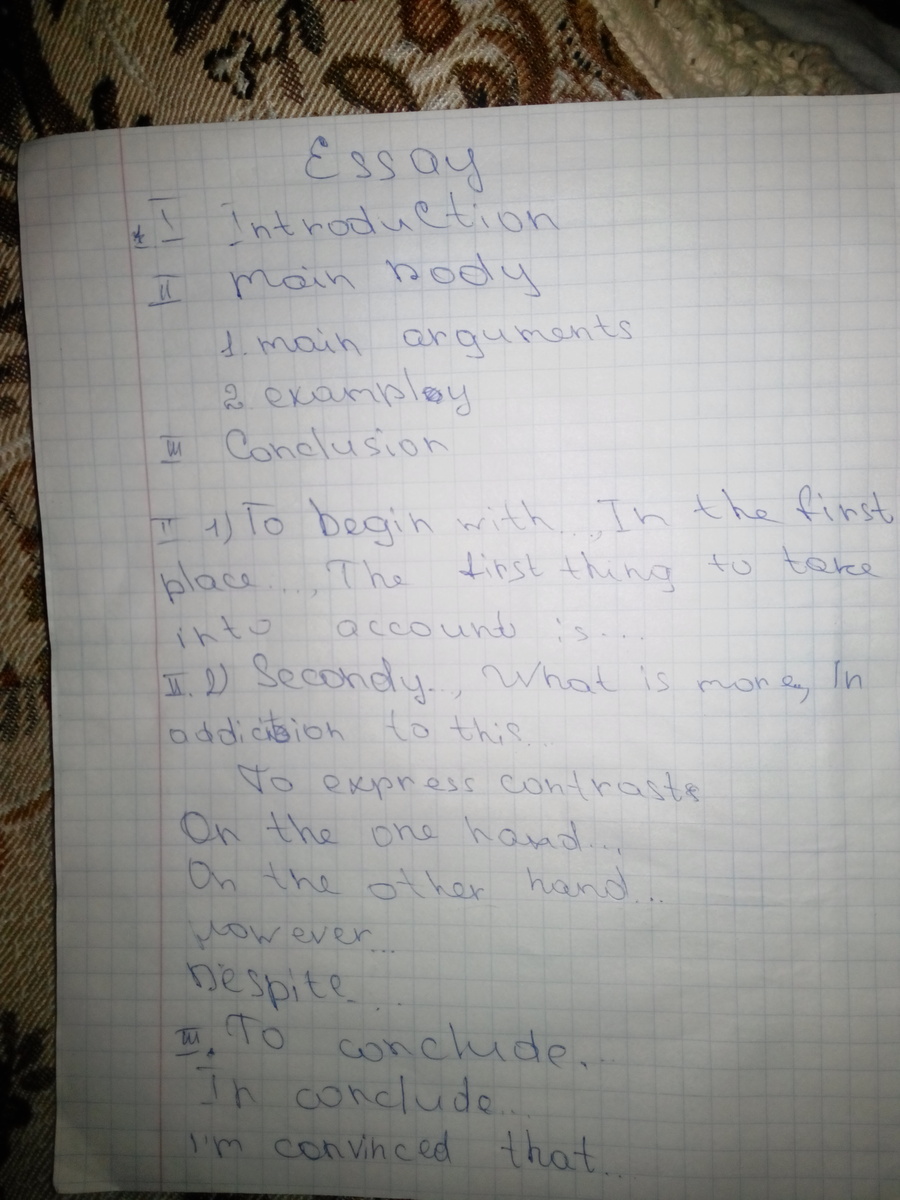 Essay
* I Introduction
II main body
1. main arguments
2. examply
III Conclusion
II 1) To begin with..., In the first
place..., The first thing to take
into account is...
II. 2) Secondy..., What is more, In
addicition to this...
To express contrasts
On the one hand...
On the other hand...
However...
Despite...
III. To conclude...
In conclude...
I'm convinced that...